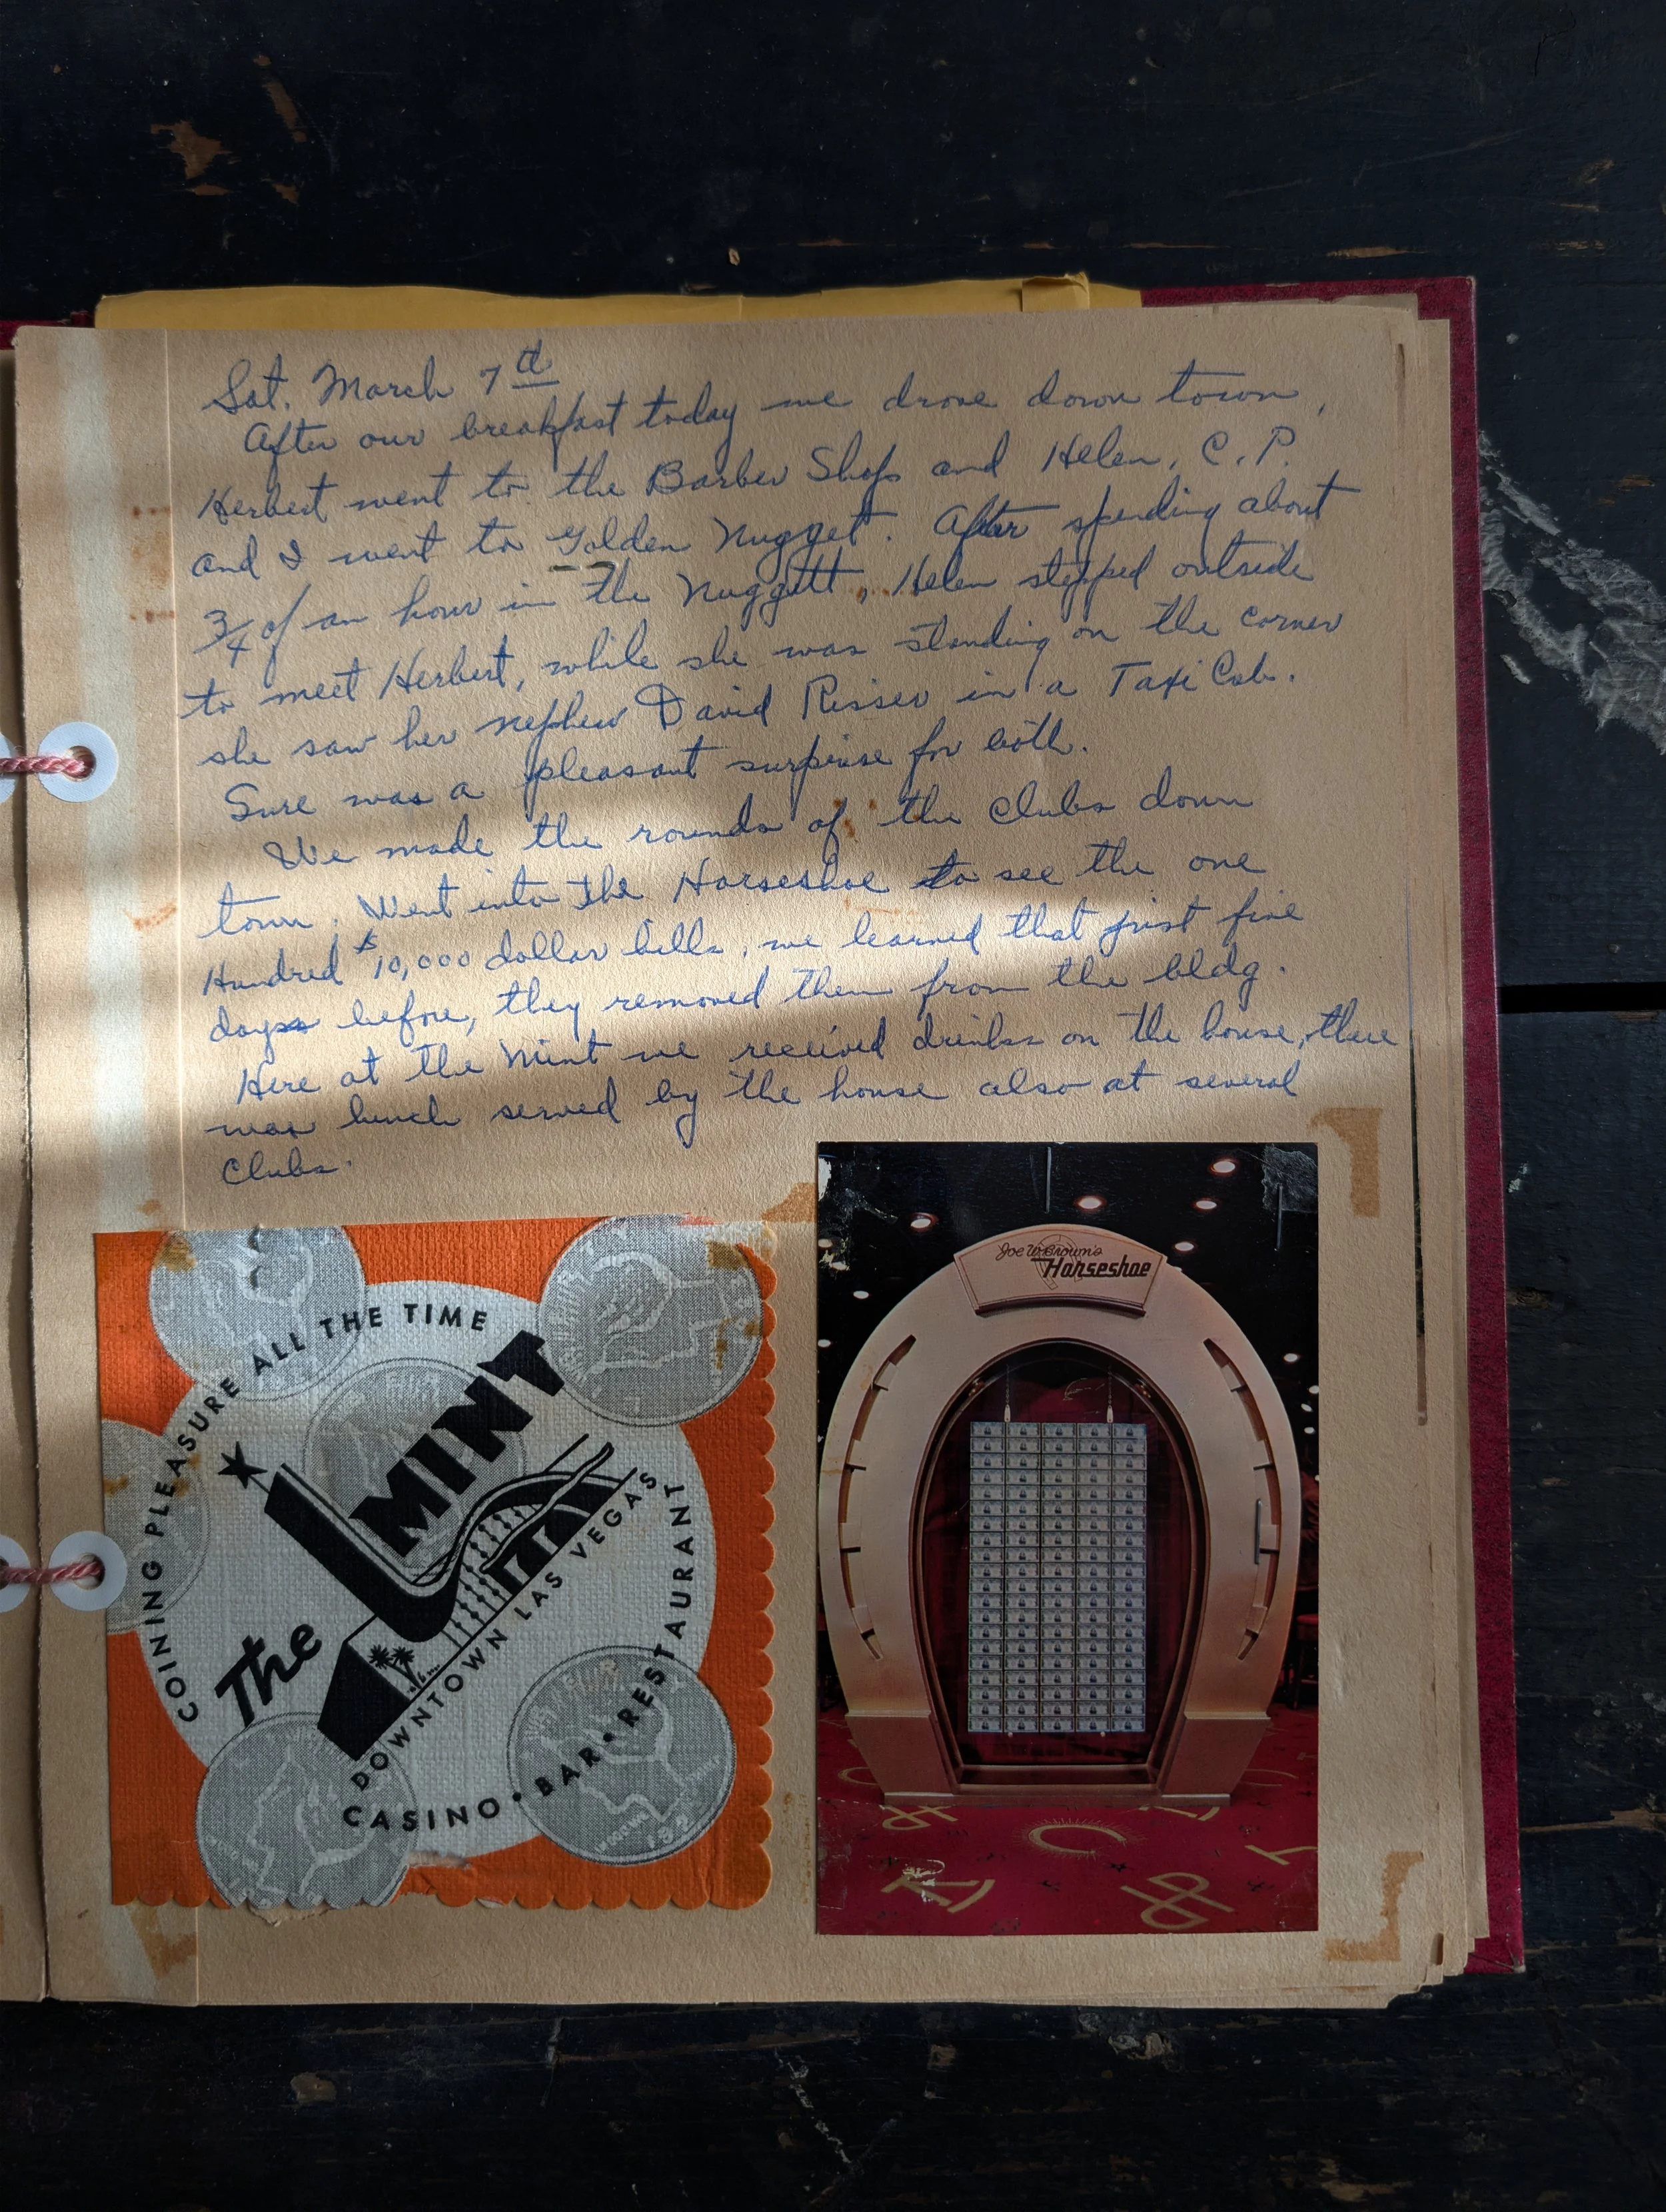 Sat. March 7th
After our breakfast today we drove down town,
Herbert went to the Barber Shop and Helen, C.P.
and I went to Golden Nugget. After spending about
3/4 of an hour in the Nuggett, Helen stepped outside
to meet Herbert, while she was standing on the corner
she saw her nephew David Risser in a Taxi Cab.
Sure was a pleasant surprise for both.
We made the rounds of the Clubs down
town. Went into the Horseshoe to see the one
Hundred $10,000 dollar bills, we learned that just five
days before, they removed them from the bldg.
Here at the Mint we received drinks on the house, there
was lunch served by the house also at several
Clubs.
COINING PLEASURE ALL THE TIME
The MINT
DOWNTOWN LAS VEGAS
CASINO • BAR • RESTAURANT
Joe W. Brown's
Horseshoe